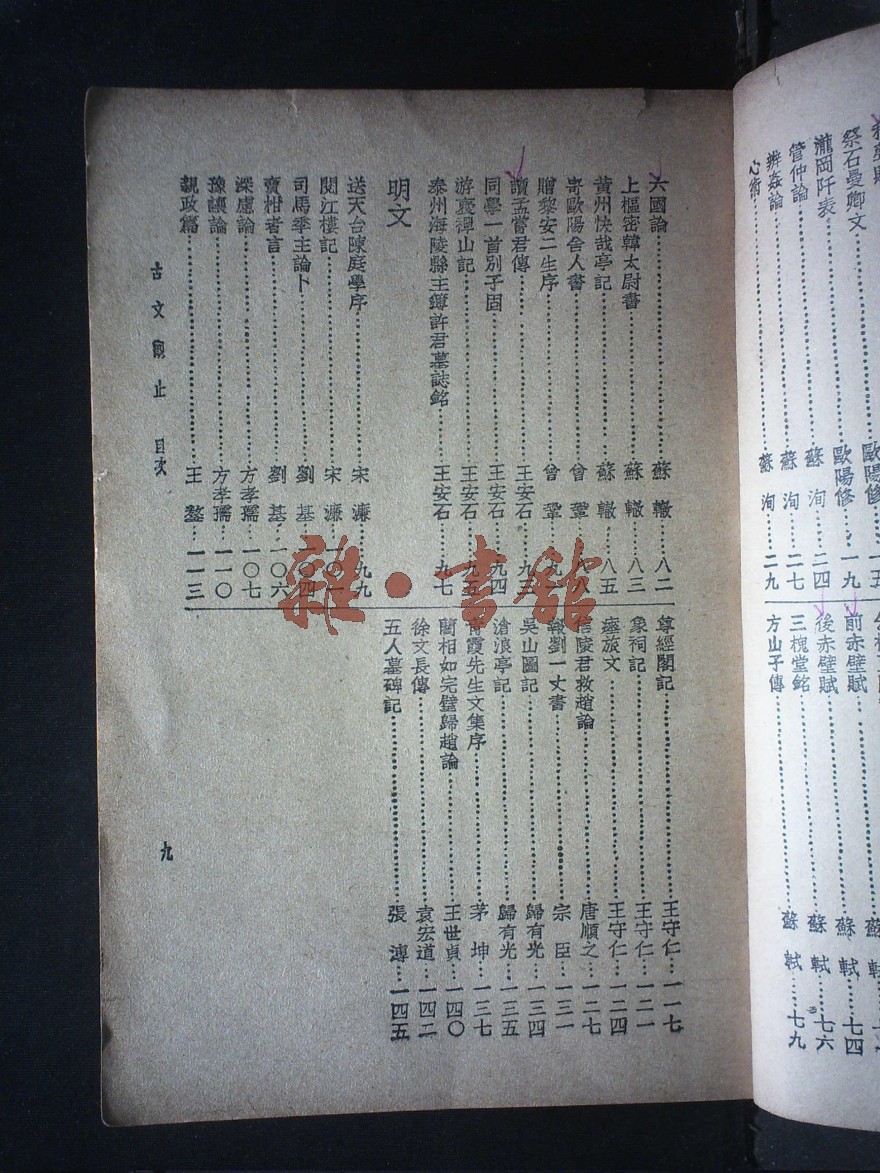 祭石曼卿文……歐陽修…一五
瀧岡阡表……歐陽修…一九
管仲論……蘇洵…二四
辨姦論……蘇洵…二七
心術……蘇洵…二九
前赤壁賦……蘇軾
後赤壁賦……蘇軾…七四
三槐堂銘……蘇軾…七六
方山子傳……蘇軾…七九
六國論……蘇轍…八二
上樞密韓太尉書……蘇轍…八三
黃州快哉亭記……蘇轍…八五
寄歐陽舍人書……曾鞏…八八
贈黎安二生序……曾鞏…九
讀孟嘗君傳……王安石…九三
同學一首別子固……王安石…九四
游褒禪山記……王安石…九五
泰州海陵縣主簿許君墓誌銘……王安石…九七
明文
送天台陳庭學序……宋濂…九九
閱江樓記……宋濂…一〇一
司馬季主論卜……劉基…一〇四
賣柑者言……劉基…一〇六
深慮論……方孝孺…一〇七
豫讓論……方孝孺…一一〇
親政篇……王鏊…一一三
尊經閣記……王守仁…一一七
象祠記……王守仁…一二一
瘞旅文……王守仁…一二四
信陵君救趙論……唐順之…一二七
報劉一丈書……宗臣…一三一
吳山圖記……歸有光…一三四
滄浪亭記……歸有光…一三五
青霞先生文集序……茅坤…一三七
藺相如完璧歸趙論……王世貞…一四〇
徐文長傳……袁宏道…一四二
五人墓碑記……張溥…一四五
古文觀止 目次
九
雜·書館